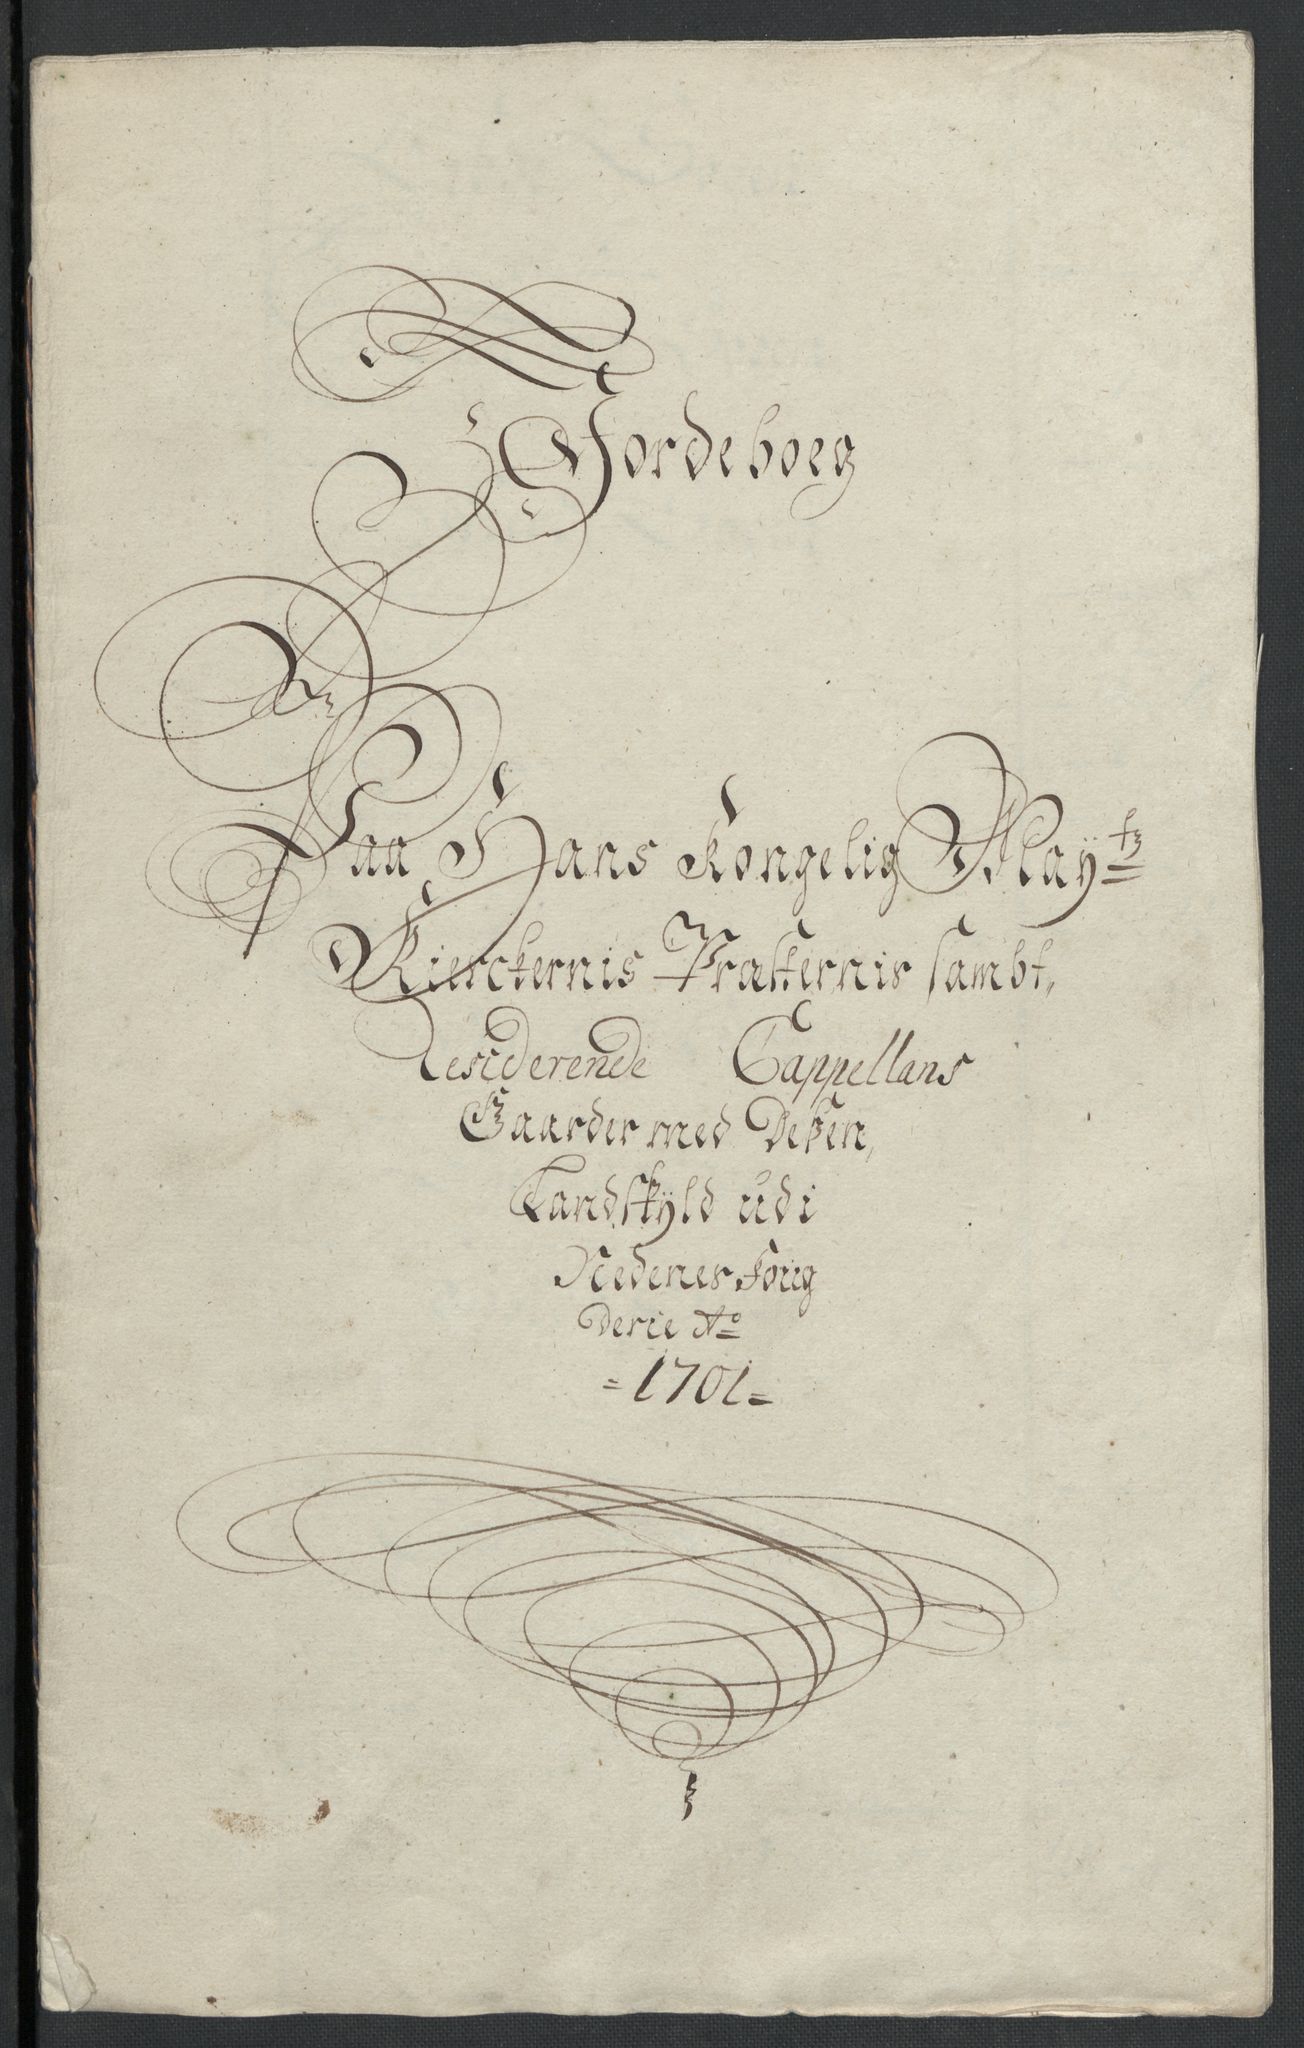 Jordeboeg
Paa Hans Kongelig Mayts
Kierckernis Præsternis sambt,
Residerende Cappellans
Gaarder med Deßen,
Landskyld udi
Nedenes foug
Derie Ao
= 1701 =